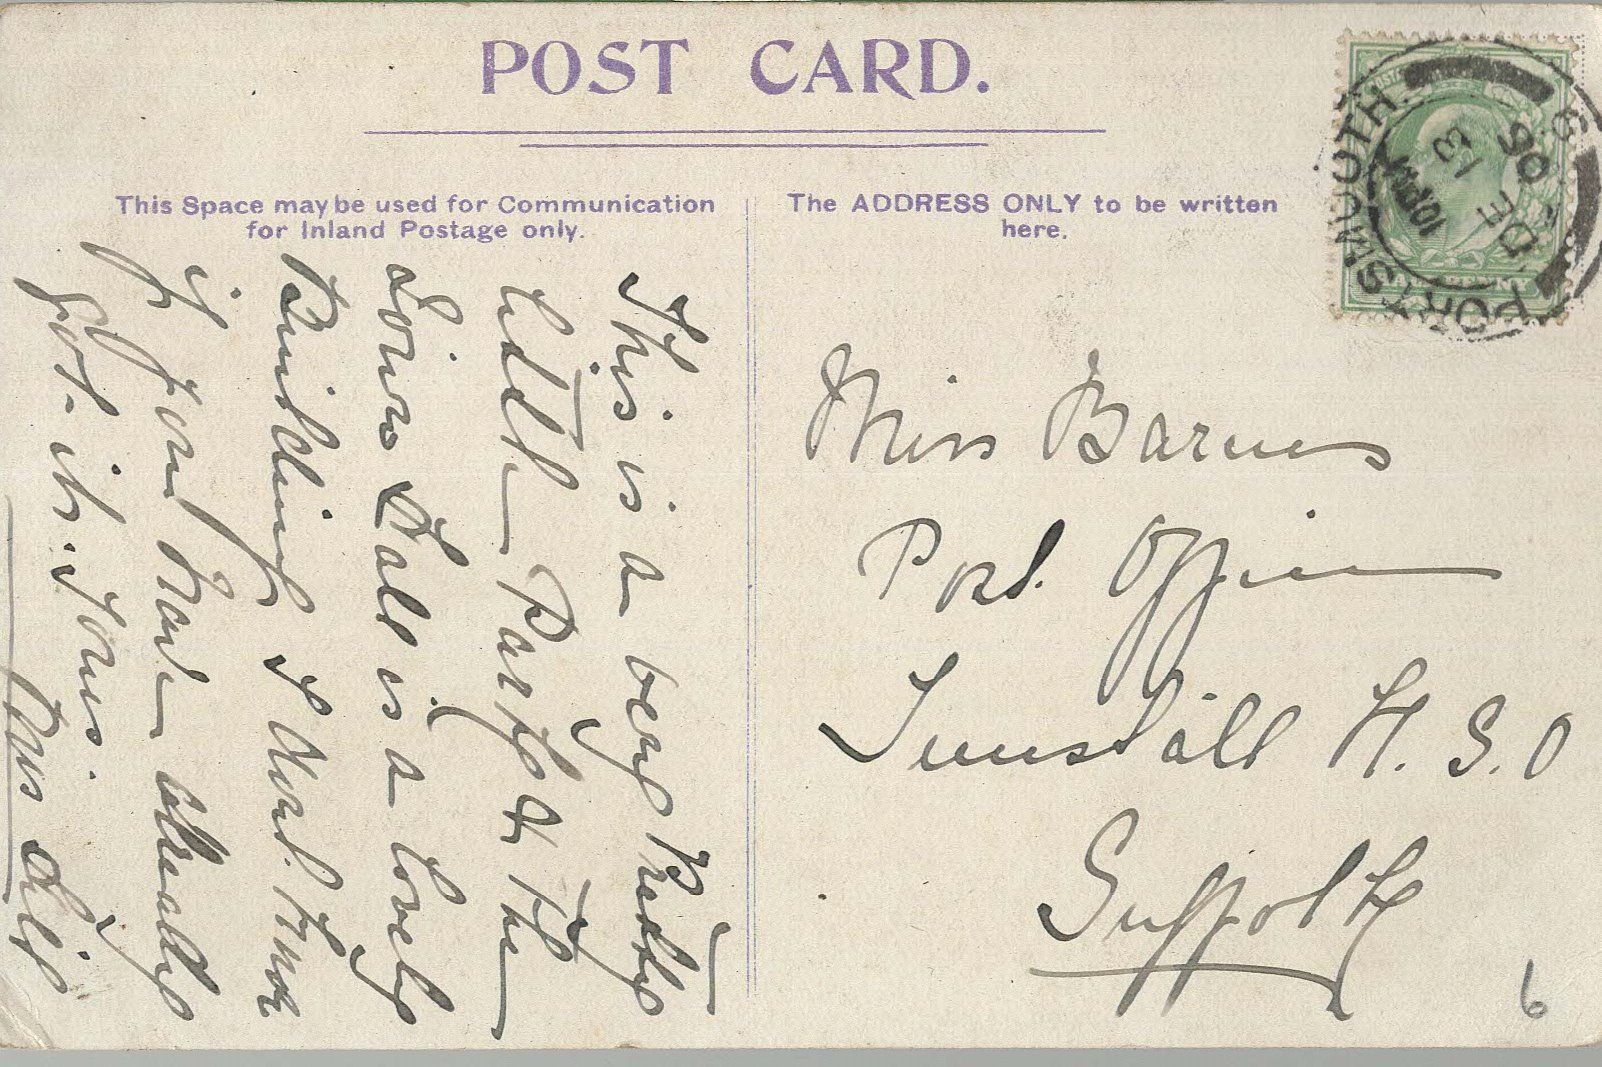 POST CARD.
This Space may be used for Communication
for Inland Postage only.
The ADDRESS ONLY to be written
here.
PORTSMOUTH
10 PM
DE 13
06
This is a very Pretty
little Park & the
Town Hall is a lovely
Building I don't know
if you have already
got it. Yours
Miss Barnes
Post Office
Tunstall H. S. O
Suffolk
6